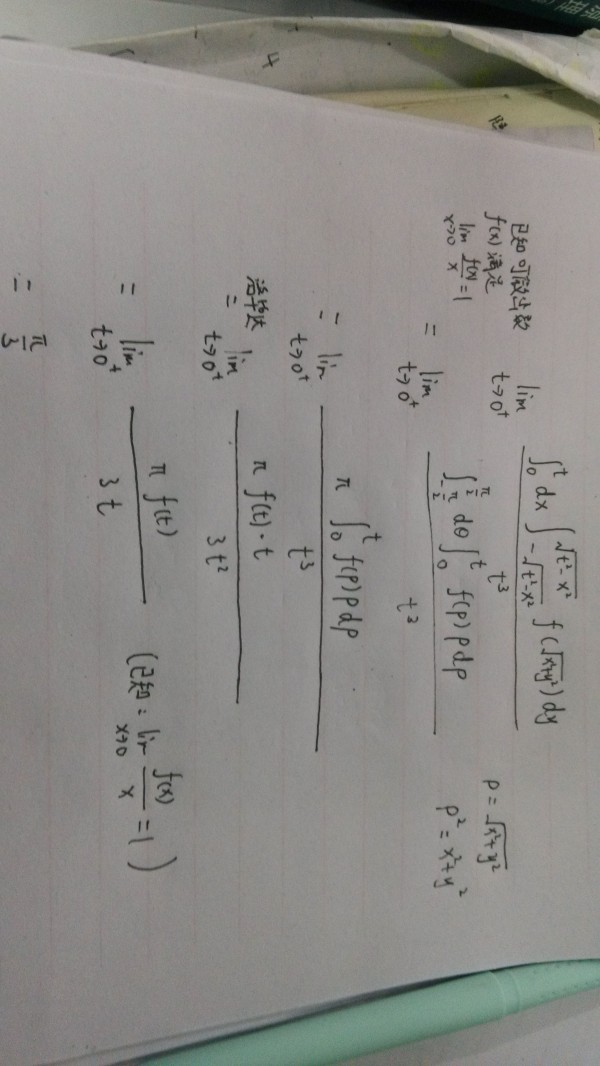 4
已知可微函数
f(x)满足
lim_{x→0} f(x)/x = 1
lim_{t→0⁺} ∫_0^t dx ∫_{-√(t²-x²)}^{√(t²-x²)} f(√(x²+y²)) dy / t³
ρ = √(x²+y²)
ρ² = x²+y²
= lim_{t→0⁺} ∫_{-π/2}^{π/2} dθ ∫_0^t f(ρ)ρdρ / t³
= lim_{t→0⁺} π ∫_0^t f(ρ)ρdρ / t³
洛必达
= lim_{t→0⁺} π f(t)·t / 3t²
= lim_{t→0⁺} π f(t) / 3t (已知: lim_{x→0} f(x)/x = 1)
= π/3